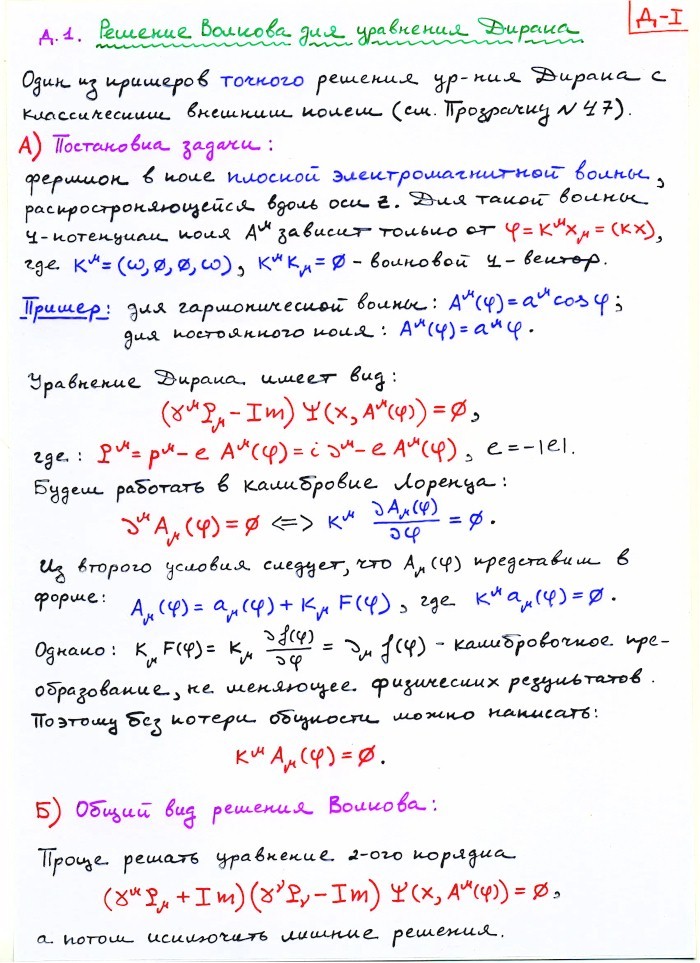 Д-I
Д.1. Решение Волкова для уравнения Дирака
Один из примеров точного решения ур-ния Дирака с
классическим внешним полем (см. Прозрачку N 47).
А) Постановка задачи:
фермион в поле плоской электромагнитной волны,
распростроняющейся вдоль оси z. Для такой волны
4-потенциал поля Aᵘ зависит только от φ = kᵘxᵤ = (kx),
где kᵘ = (ω, ø, ø, ω), kᵘkᵤ = ø - волновой 4-вектор.
Пример: для гармонической волны: Aᵘ(φ) = aᵘcosφ;
для постоянного поля: Aᵘ(φ) = aᵘφ.
Уравнение Дирака имеет вид:
(γᵘPᵤ - Im) Ψ(x, Aᵘ(φ)) = ø,
где: Pᵘ = pᵘ - e Aᵘ(φ) = i ∂ᵘ - e Aᵘ(φ), e = -|e|.
Будем работать в калибровке Лоренца:
∂ᵘAᵤ(φ) = ø <=> kᵘ ∂Aᵤ(φ)/∂φ = ø.
Из второго условия следует, что Aᵤ(φ) представим в
форме: Aᵤ(φ) = aᵤ(φ) + kᵤ F(φ), где kᵘaᵤ(φ) = ø.
Однако: kᵤF(φ) = kᵤ ∂f(φ)/∂φ = ∂ᵤ f(φ) - калибровочное пре-
образование, не меняющее физических результатов.
Поэтому без потери общности можно написать:
kᵘAᵤ(φ) = ø.
Б) Общий вид решения Волкова:
Проще решать уравнение 2-ого порядка
(γᵘPᵤ + Im)(γᵛPᵥ - Im) Ψ(x, Aᵘ(φ)) = ø,
а потом исключить лишние решения.